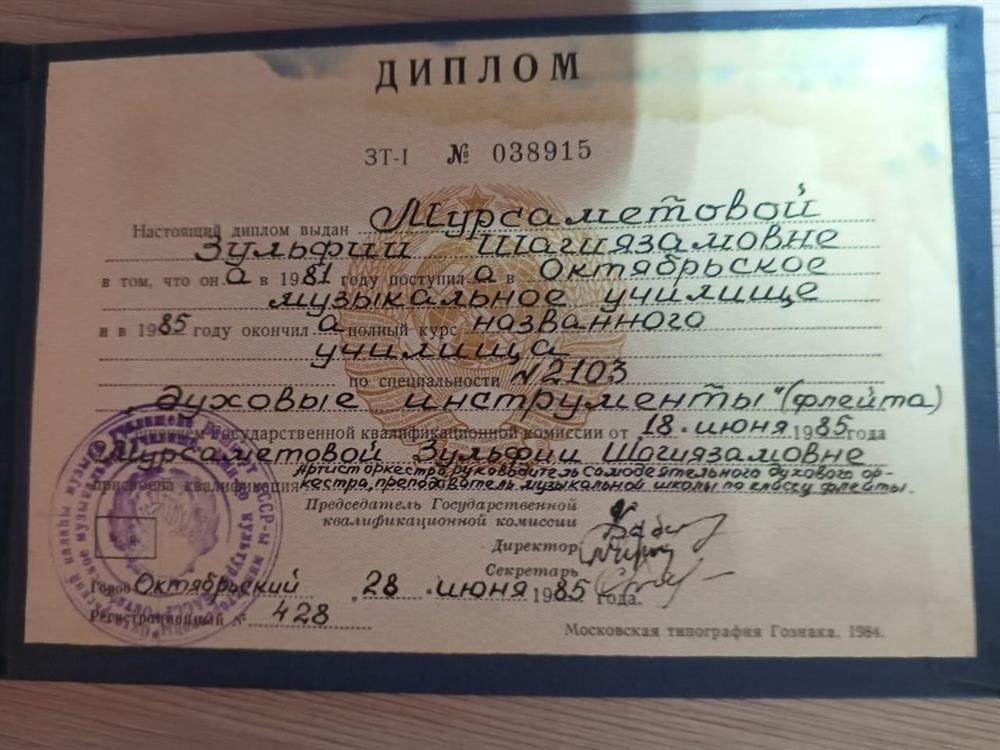 ДИПЛОМ
ЗТ-I № 038915
Настоящий диплом выдан Мурсаметовой
Зульфии Шагиязамовне
в том, что он а в 1981 году поступил а в Октябрьское
музыкальное училище
и в 1985 году окончил а полный курс названного
училища
по специальности N2103
„духовые инструменты" (флейта)
Государственной квалификационной комиссии от 18. июня 1985 года
Мурсаметовой Зульфии Шагиязамовне
присвоена квалификация Артист оркестра, руководитель самодеятельного духового ор-
кестра, преподаватель музыкальной школы по классу флейты.
Председатель Государственной
квалификационной комиссии
Директор
Секретарь
Город Октябрьский „28 июня 1985 года.
Регистрационный № 428
Московская типография Гознака. 1984.